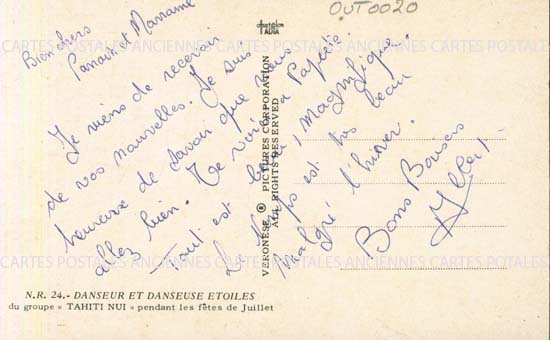 OUT0020
Bien chers
Parrain et Marraine
Je viens de recevoir
de vos nouvelles. Je suis
heureuse de savoir que vous
allez bien. Je vais à Papeete
Tout est beau, magnifique.
Le temps est très beau
malgré l'hiver.
Bons Baisers
VERONESE ® PICTURES CORPORATION
ALL RIGHTS RESERVED
CARTES POSTALES ANCIENNES CARTES POSTALES ANCIENNES
N.R. 24.- DANSEUR ET DANSEUSE ETOILES
du groupe « TAHITI NUI » pendant les fêtes de Juillet